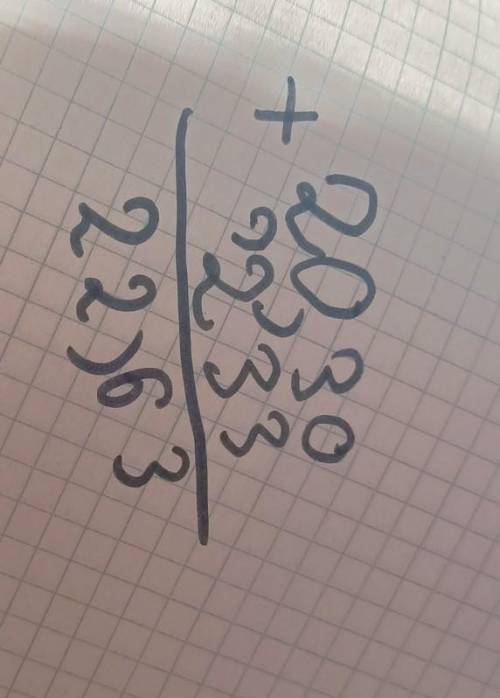 + 20,30
2,33
22,63